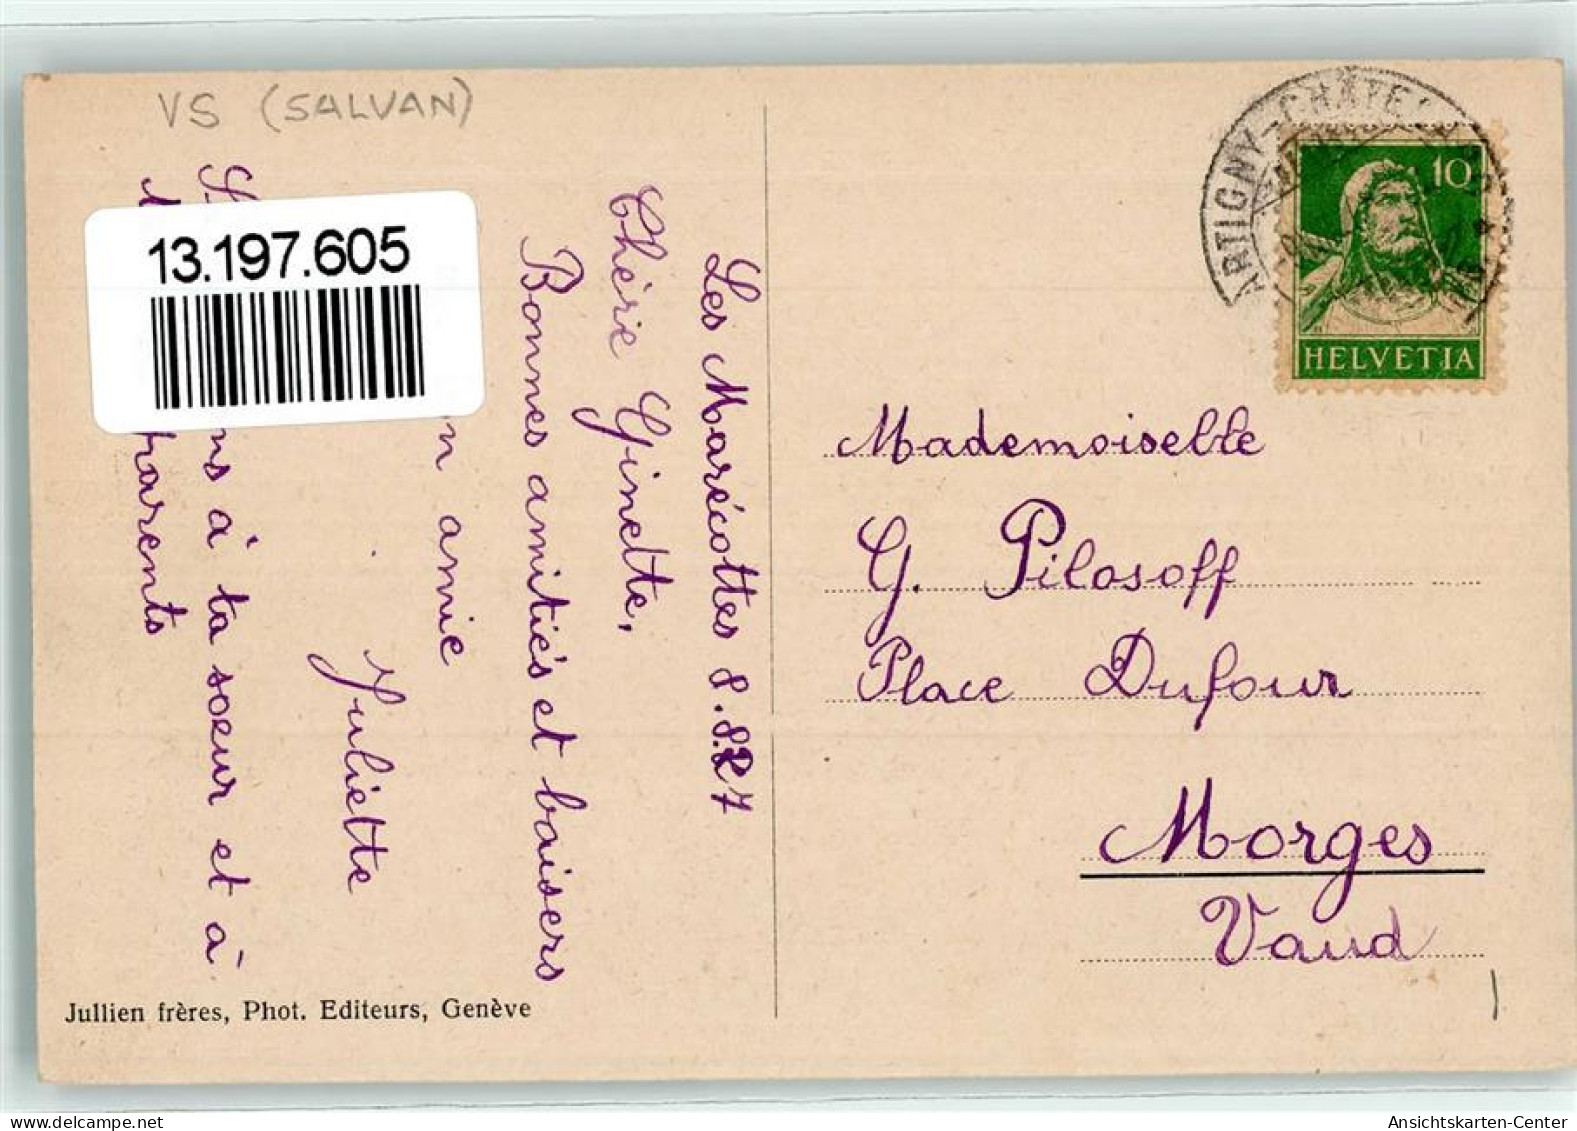 VS (SALVAN)
13.197.605
Les Marécottes 8.8.27
Chérie Ginette,
Bonnes amitiés et baisers
amie
Juliette
à ta soeur et à
parents
Jullien frères, Phot. Editeurs, Genève
ARTIGNY-CHÂTE
10
HELVETIA
Mademoiselle
G. Pilosoff
Place Dufour
Morges
Vaud
Ansichtskarten-Center